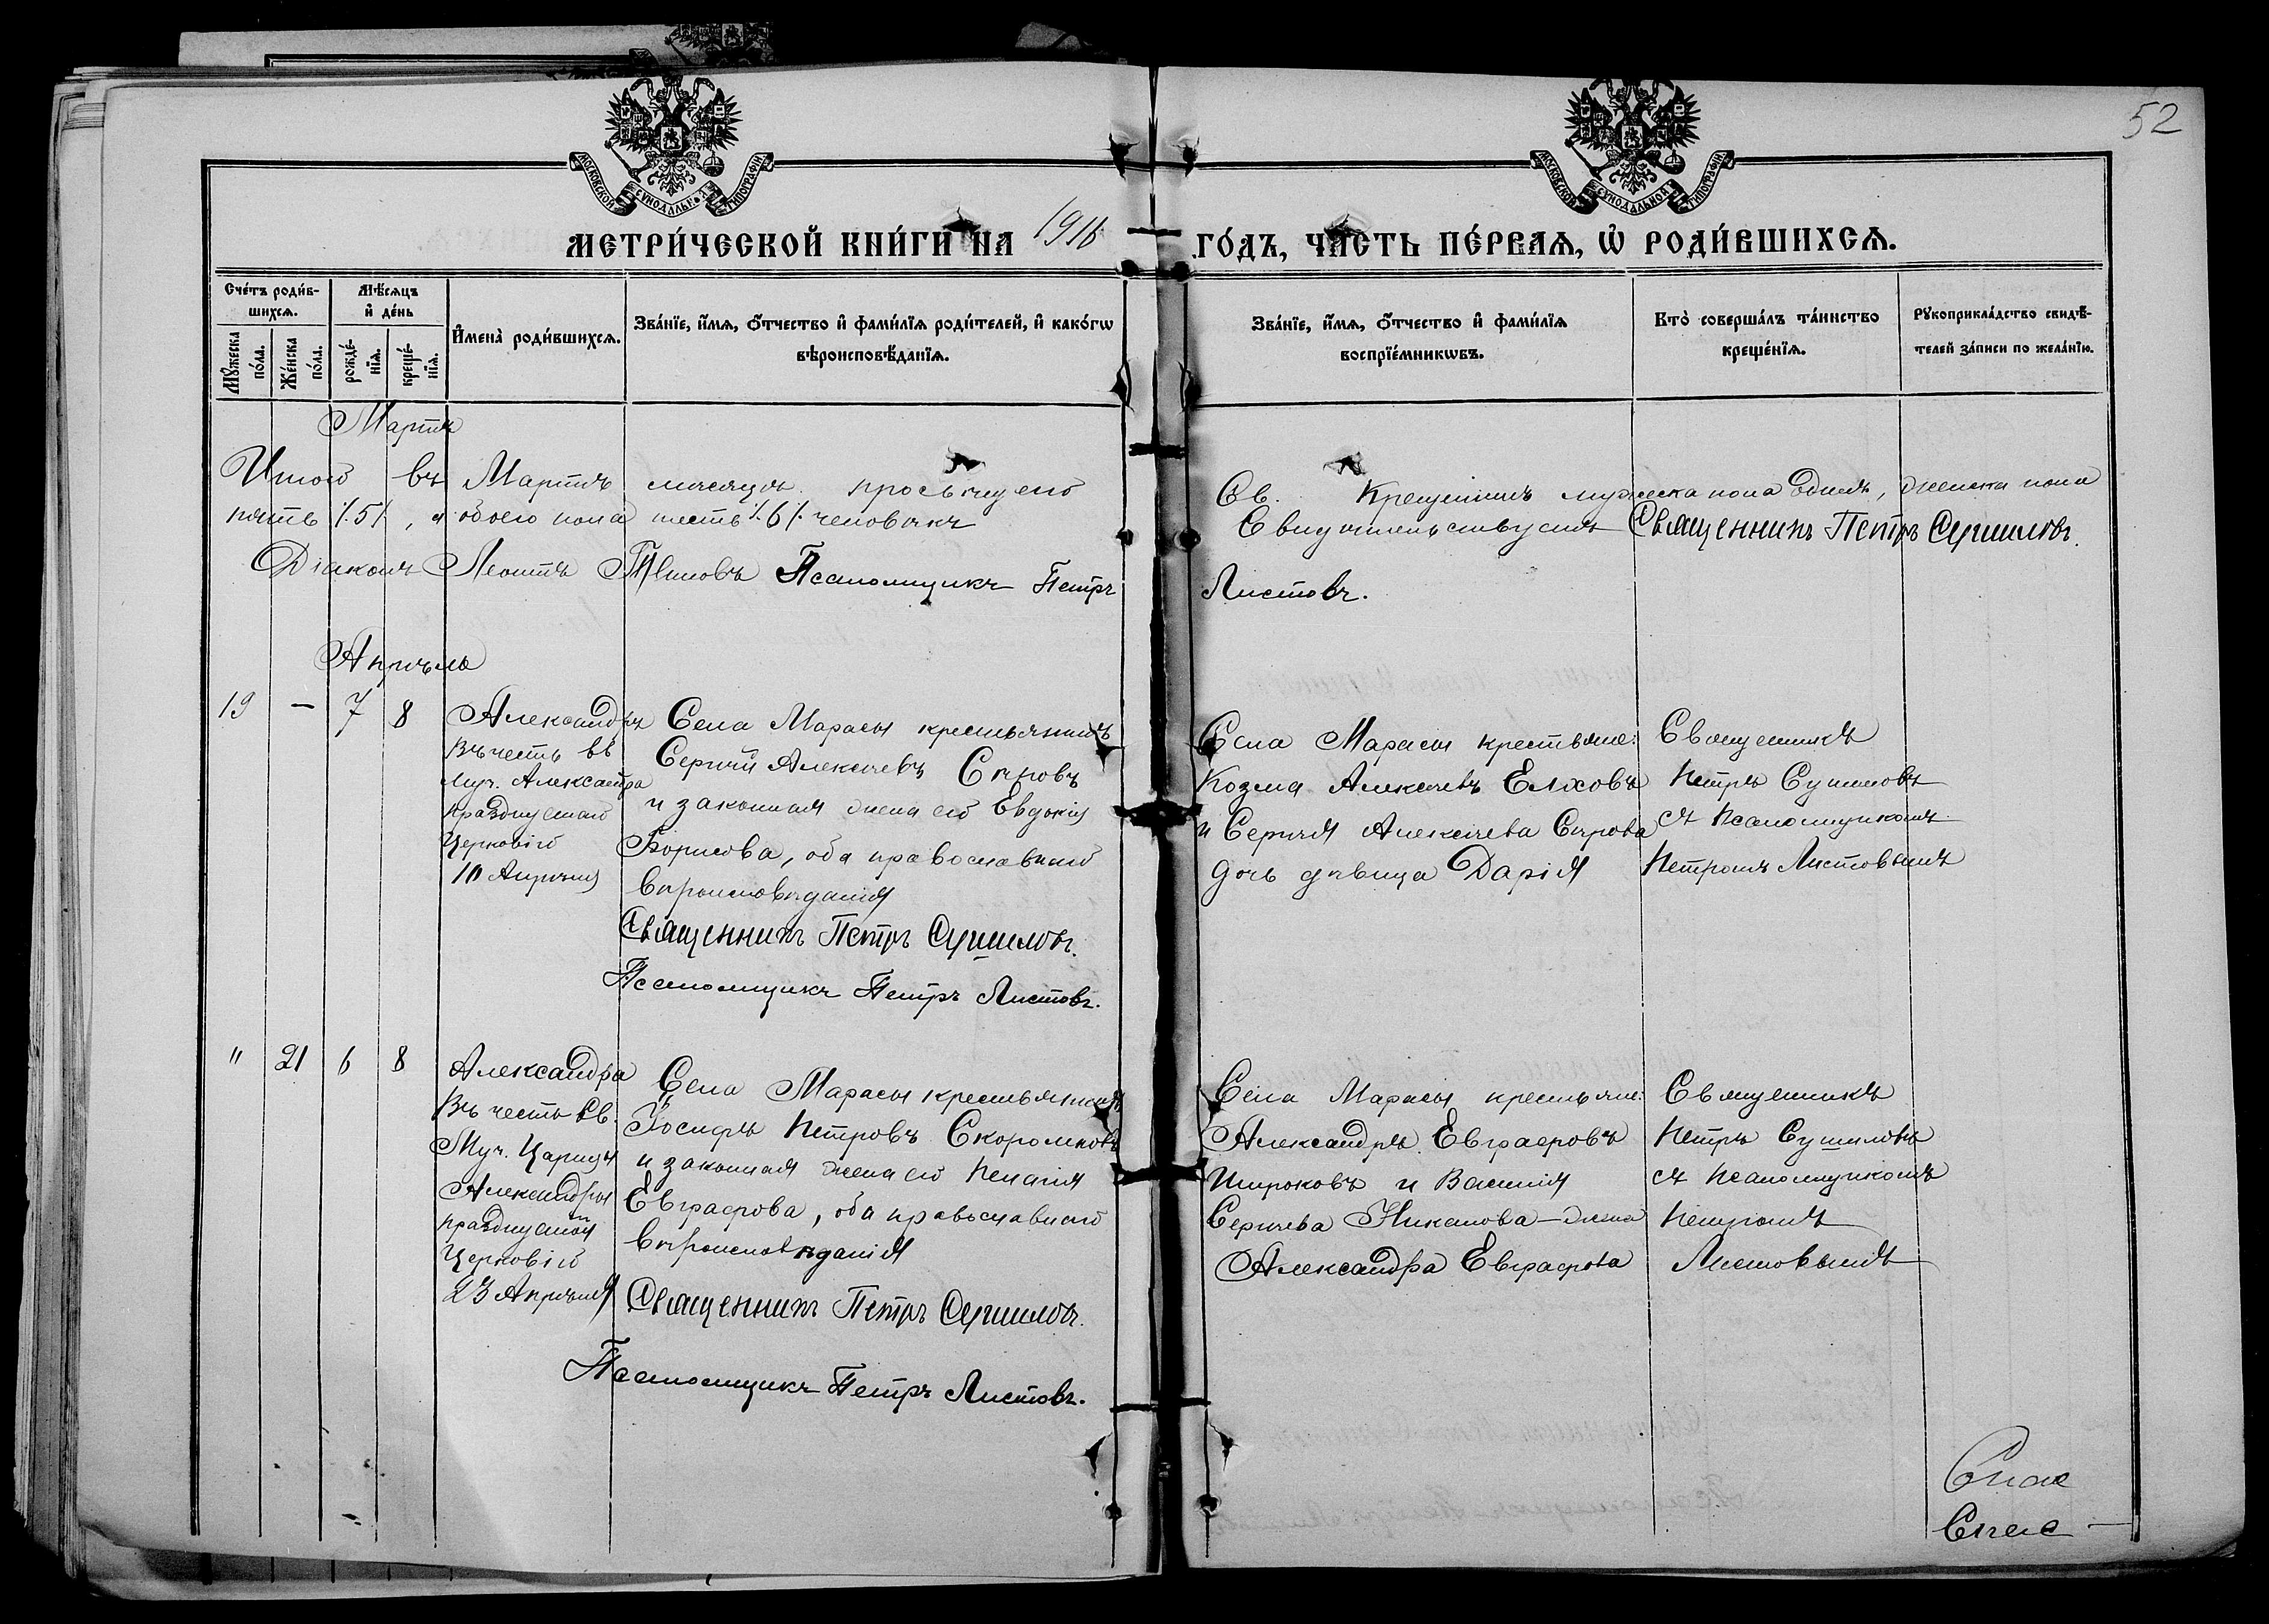 52
МОСКОВСКОЙ СУНОДАЛЬНОЙ ТИПОГРАФІИ
МОСКОВСКОЙ СУНОДАЛЬНОЙ ТИПОГРАФІИ
МЕТРИ́ЧЕСКОЙ КНИ́ГИ НА 1916 ГО́ДЪ, ЧА́СТЬ ПЕ́РВАѦ, Ѡ҆ РОДИ́ВШИХСѦ.
Сче́тъ роди́в-
шихсѧ.
Мꙋ́жеска по́ла.
Же́нска по́ла.
Мѣ́сѧцъ
и҆ де́нь
рожде́-
нїѧ.
креще́-
нїѧ.
И҆мена̀ роди́вшихсѧ.
Зва́нїе, и҆́мѧ, ѻ҆́тчество и҆ фами́лїѧ роди́телей, и҆ како́гѡ
вѣроисповѣ́данїѧ.
Зва́нїе, и҆́мѧ, ѻ҆́тчество и҆ фами́лїѧ
воспрїе́мникѡвъ.
Кто̀ соверша́лъ та́инство
креще́нїѧ.
Рꙋкоприкла́дство свидѣ́-
телей за́писи по жела́нїю.
Мартъ
Итого въ Мартѣ месяцѣ просвѣщено Св. Крещеніемъ мужеска пола одинъ, женска пола
пять /.5/., а обоего пола шесть /.6/. человѣкъ Свидѣтельствуемъ Священникъ Петръ Сушиловъ.
Діаконъ Леонтъ Псаломщикъ Петръ Листовъ.
Апрѣль
19 — 7 8
Александръ
въ честь св
муч. Александра
празднуемаго
Церковію
10 Апрѣля
Села Марасы крестьянинъ
Сергѣй Алексѣевъ Сѣровъ
и законная жена его Евдокія
Борисова, оба православнаго
вѣроисповѣданія
Священникъ Петръ Сушиловъ.
Псаломщикъ Петръ Листовъ.
Села Марасы крестьяне:
Козма Алексѣевъ Елховъ
и Сергѣя Алексѣева Сѣрова
дочь дѣвица Дарія
Священникъ
Петръ Сушиловъ
съ псаломщикомъ
Петромъ Листовымъ
" 21 6 8
Александра
Въ честь Св.
Муч. Царицы
Александры
празднуемой
Церковію
23 Апрѣля
Села Марасы крестьянинъ
Іосифъ Петровъ Скоромновъ
и законная жена его Пелагія
Евграфова, оба православнаго
вѣроисповѣданія
Священникъ Петръ Сушиловъ.
Псаломщикъ Петръ Листовъ.
Села Марасы крестьяне:
Александръ Евграфовъ
Широковъ и Василія
Сергѣева Жикалова – жена
Александра Евграфова
Священникъ
Петръ Сушиловъ
съ псаломщикомъ
Петромъ
Листовымъ